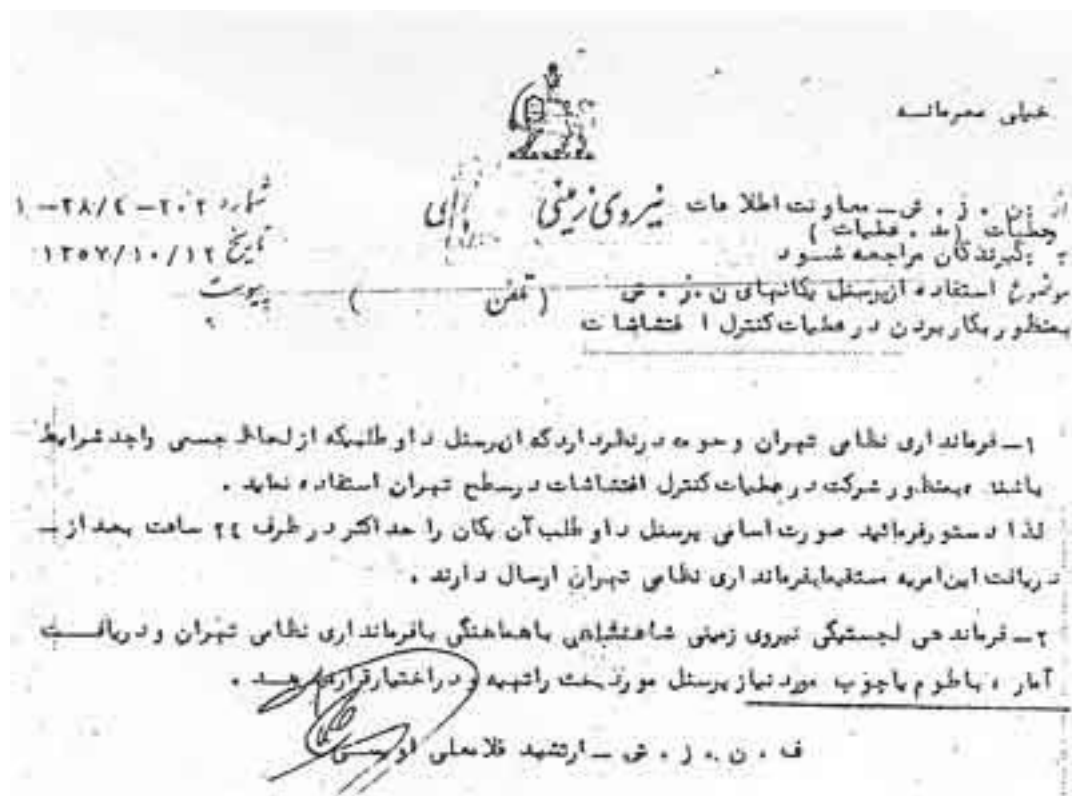 خیلی محرمانه
از ن . ز . ش ــ معاونت اطلاعات نیروی زمینی
عملیات ( مد . عملیات )
شماره ۲۰۲-۲۸/٤-۱
به گیرندگان مراجعه شود
تاریخ ۱۳۵۷/۱۰/۱۲
موضوع استفاده از پرسنل یکانهای ن . ز . ش ( تلفن ) پیوست
بمنظور بکار بردن در عملیات کنترل اغتشاشات
۱ــ فرمانداری نظامی تهران و حومه در نظر دارد که از پرسنل داوطلبیکه از لحاظ جسمی واجد شرایط
باشند بمنظور شرکت در عملیات کنترل اغتشاشات در سطح تهران استفاده نماید .
لذا دستور فرمائید صورت اسامی پرسنل داوطلب آن یکان را حداکثر در ظرف ۲٤ ساعت بعد از ــ
دریافت این امریه مستقیما بفرمانداری نظامی تهران ارسال دارند .
۲ــ فرماندهی لجستیکی نیروی زمینی شاهنشاهی با هماهنگی با فرمانداری نظامی تهران و دریافت
آمار ، باطوم یا چوب مورد نیاز پرسنل مورد بحث را تهیه و در اختیار قرار دهد .
ف . ن . ز . ش ــ ارتشبد غلامعلی اویسی